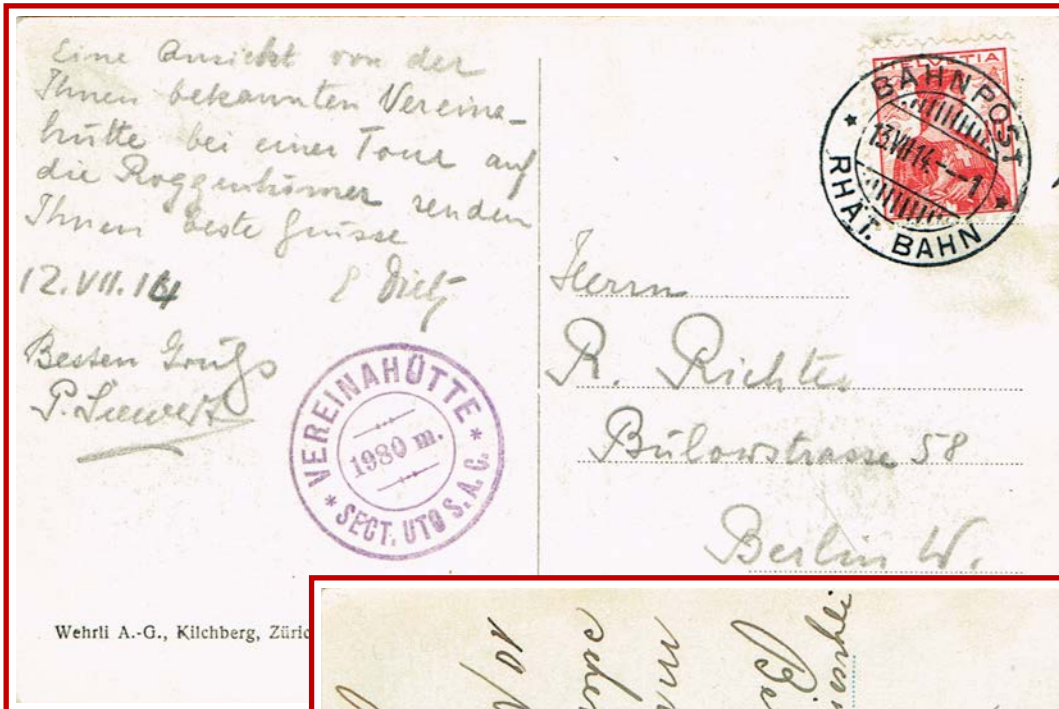 Eine Ansicht von der
Ihnen bekannten Vereina-
hütte bei einer Tour auf
die Roggenhörner senden
Ihnen beste Grüsse
12.VII.14 E Dietz
Besten Gruss
P. Siewert
VEREINAHÜTTE
1980 m.
SECT. UTO S.A.C.
Wehrli A.-G., Kilchberg, Züric
HELVETIA
BAHNPOST
13.VII.14 – 1
RHÄT. BAHN
Herrn
R. Richter
Bülowstrasse 58
Berlin W.
10